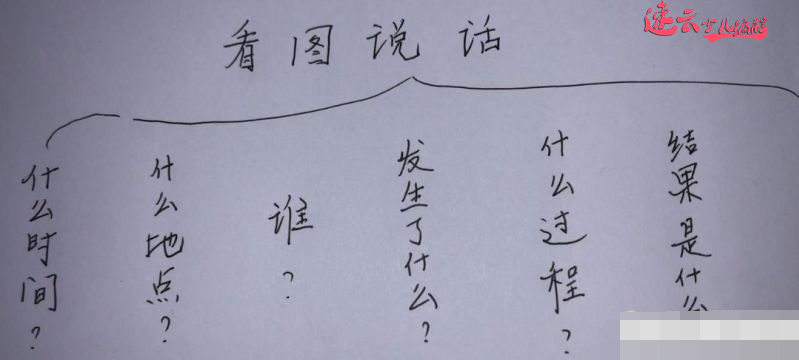 看图说话
速云少儿编程
什么时间?
什么地点?
谁?
发生了什么?
什么过程?
结果是什么